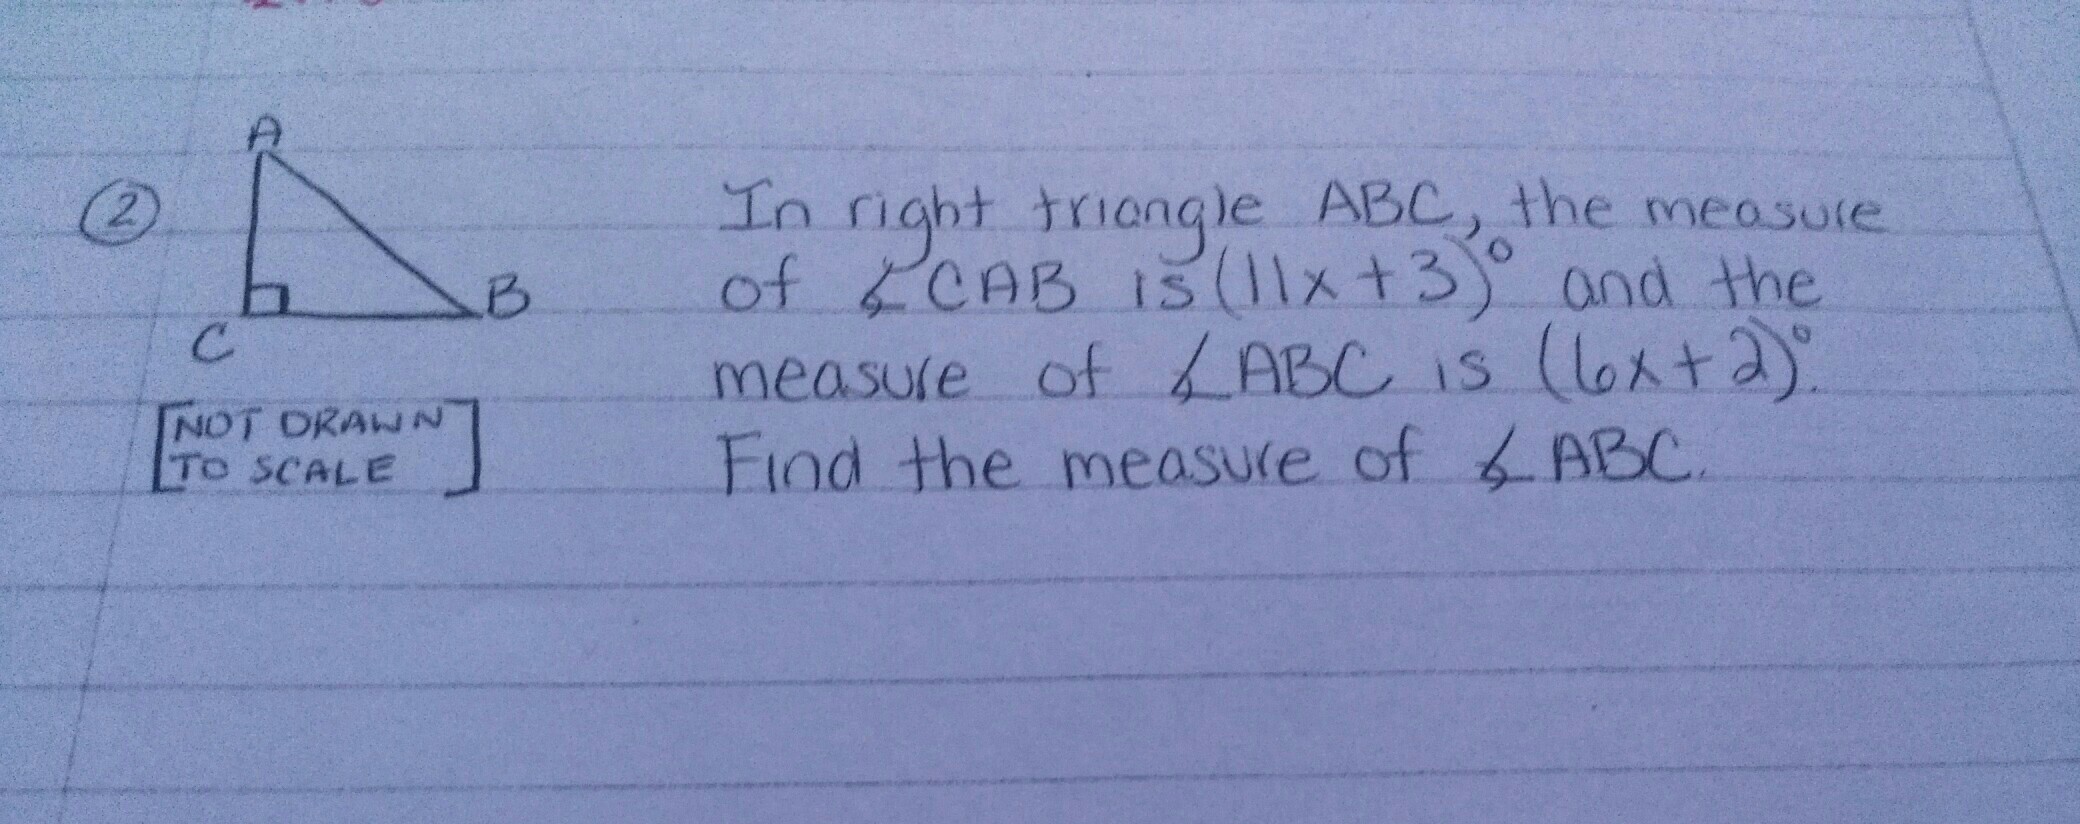 ②
A
B
C
[NOT DRAWN
TO SCALE]
In right triangle ABC, the measure
of ∡CAB is (11x+3)° and the
measure of ∡ABC is (6x+2)°.
Find the measure of ∡ABC.